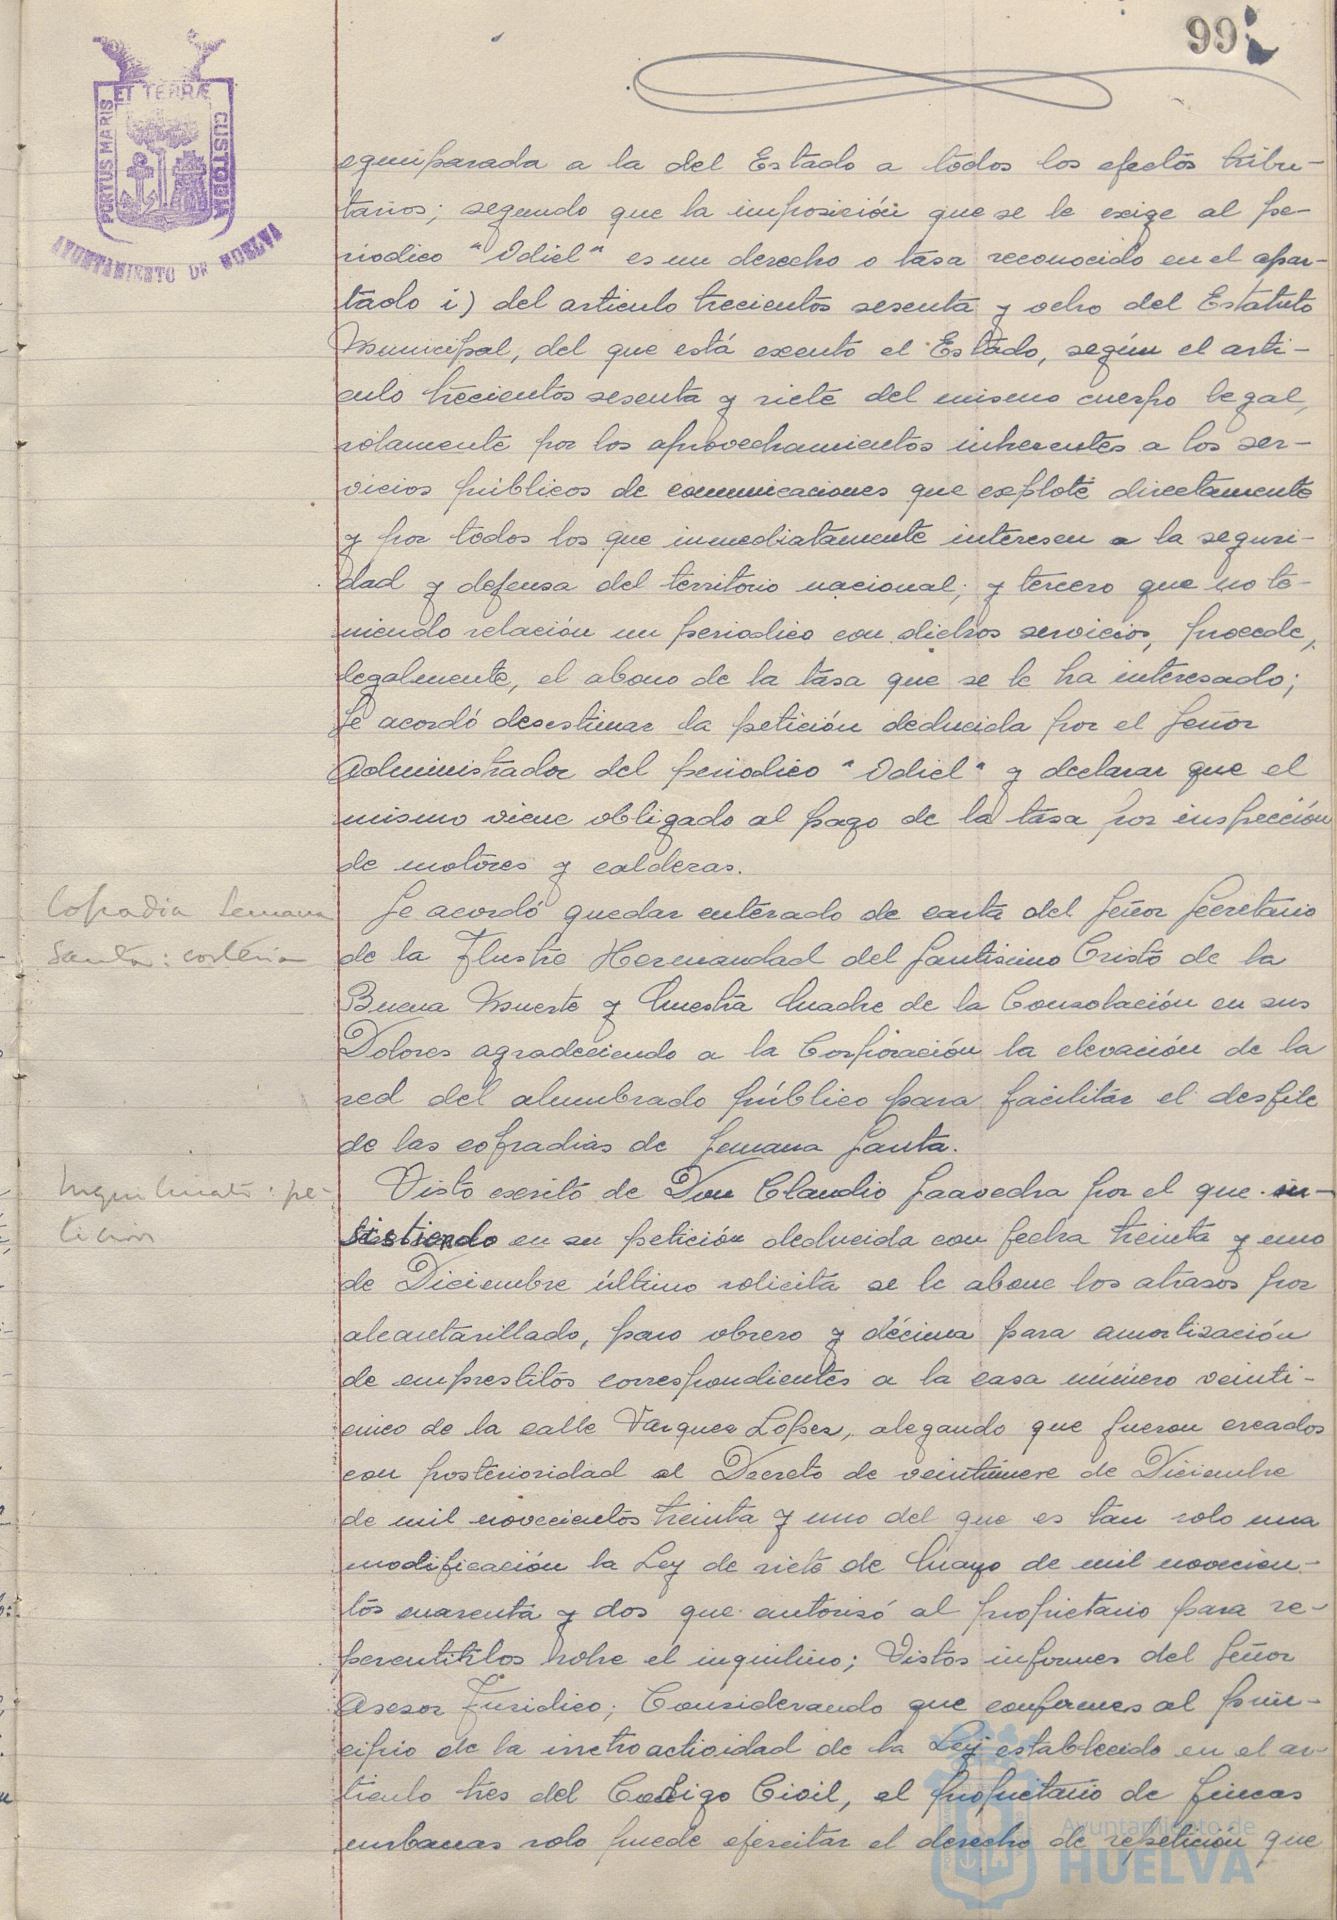 99
PORTUS MARIS ET TERRÆ CUSTODIA
AYUNTAMIENTO DE HUELVA
equiparada a la del Estado a todos los efectos tribu-
tarios; segundo que la imposición que se le exige al pe-
riodico "Odiel" es un derecho o tasa reconocido en el apar-
tado i) del articulo trecientos sesenta y ocho del Estatuto
Municipal, del que está exento el Estado, según el arti-
culo trecientos sesenta y siete del mismo cuerpo legal,
solamente por los aprovechamientos inherentes a los ser-
vicios públicos de comunicaciones que explote directamente
y por todos los que inmediatamente interesen a la seguri-
dad y defensa del territorio nacional; y tercero que no te-
niendo relación un periodico con dichos servicios, procede,
legalmente, el abono de la tasa que se le ha interesado;
Se acordó desestimar la petición deducida por el Señor
Administrador del periodico "Odiel" y declarar que el
mismo viene obligado al pago de la tasa por inspección
de motores y calderas.
Cofradia Semana
Santa: cortesia
Se acordó quedar enterado de carta del Señor Secretario
de la Ilustre Hermandad del Santisimo Cristo de la
Buena Muerte y Nuestra Madre de la Consolación en sus
Dolores agradeciendo a la Corporación la elevación de la
red del alumbrado público para facilitar el desfile
de las cofradias de Semana Santa.
Inquilinato: pe-
tición
Visto escrito de Don Claudio Saavedra por el que in-
sistiendo en su petición deducida con fecha treinta y uno
de Diciembre último solicita se le abone los atrasos por
alcantarillado, paro obrero y décima para amortización
de emprestitos correspondientes a la casa número veinti-
cinco de la calle Vazquez Lopez, alegando que fueron creados
con posterioridad al Decreto de veintinueve de Diciembre
de mil novecientos treinta y uno del que es tan solo una
modificación la Ley de siete de Mayo de mil novecien-
tos cuarenta y dos que autorizó al propietario para re-
percutirlos sobre el inquilino; Vistos informes del Señor
Asesor Juridico; Considerando que conformes al prin-
cipio de la irretroactividad de la Ley establecido en el ar-
ticulo tres del Codigo Civil, el propietario de fincas
urbanas solo puede ejercitar el derecho de repetición que
Ayuntamiento de
HUELVA